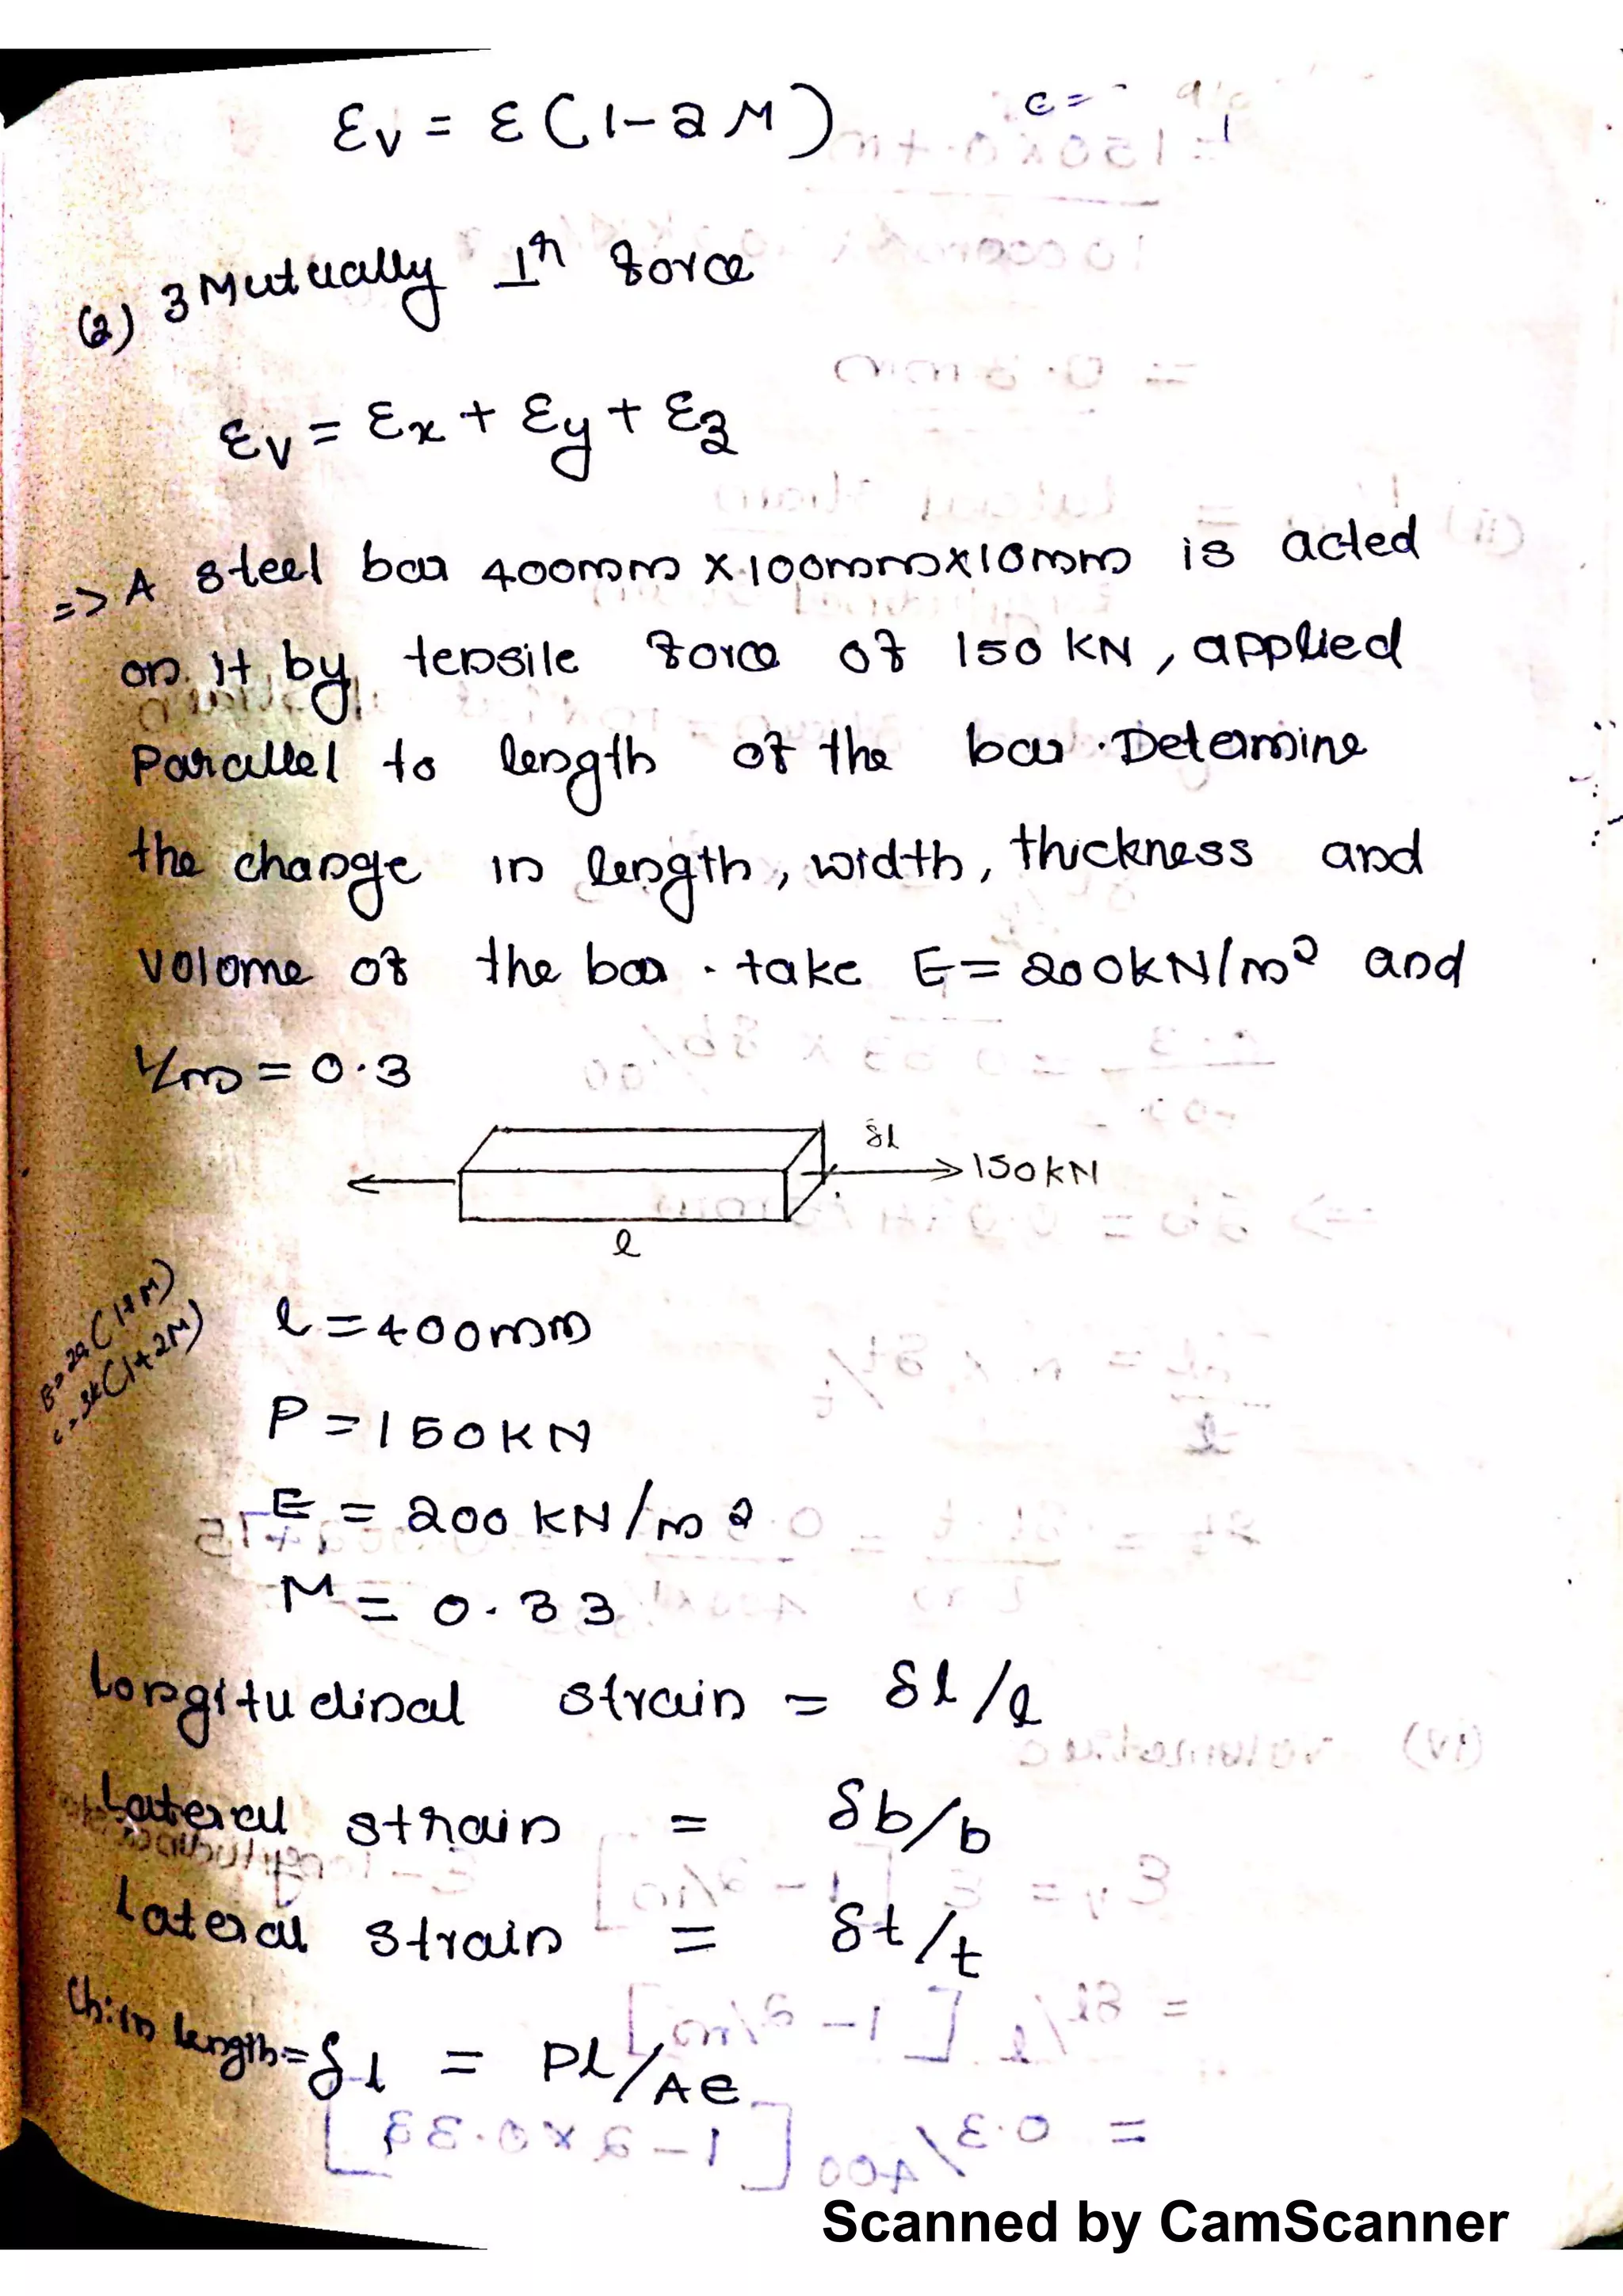 εv = ε(1-2μ)
(2) 3 Mutually ⊥r force
εv = εx + εy + εz
=> A steel bar 400mm x 100mm x 10mm is acted
on it by tensile force of 150 KN, applied
Parallel to length of the bar. Determine
the change in length, width, thickness and
volome of the bar. take E = 200kN/m² and
1/m = 0.3
δl
150kN
l
l = 400mm
P = 150KN
E = 200 KN/m²
μ = 0.33
Longitudinal strain = δl/l
Lateral strain = δb/b
Lateral strain = δt/t
Ch: in length = δl = Pl/AE
Scanned by CamScanner